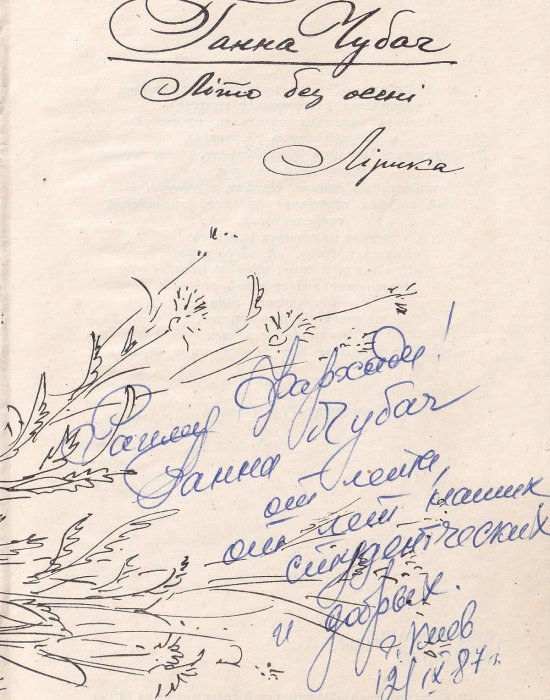 Ганна Чубач
Літо без осені
Лірика
Фархади!
Чубач
Ганна
от лета,
от лет наших
студентческих
и добрых.
г. Киев
12/IX 87 г.